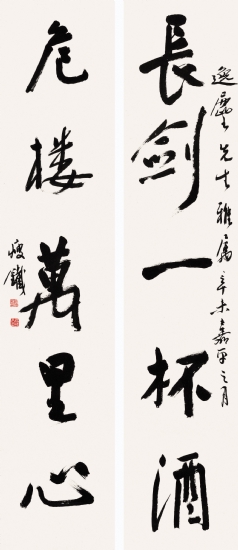 長劍一杯酒
逸塵先生雅屬辛未嘉平之月
危楼萬里心
瘦鐵